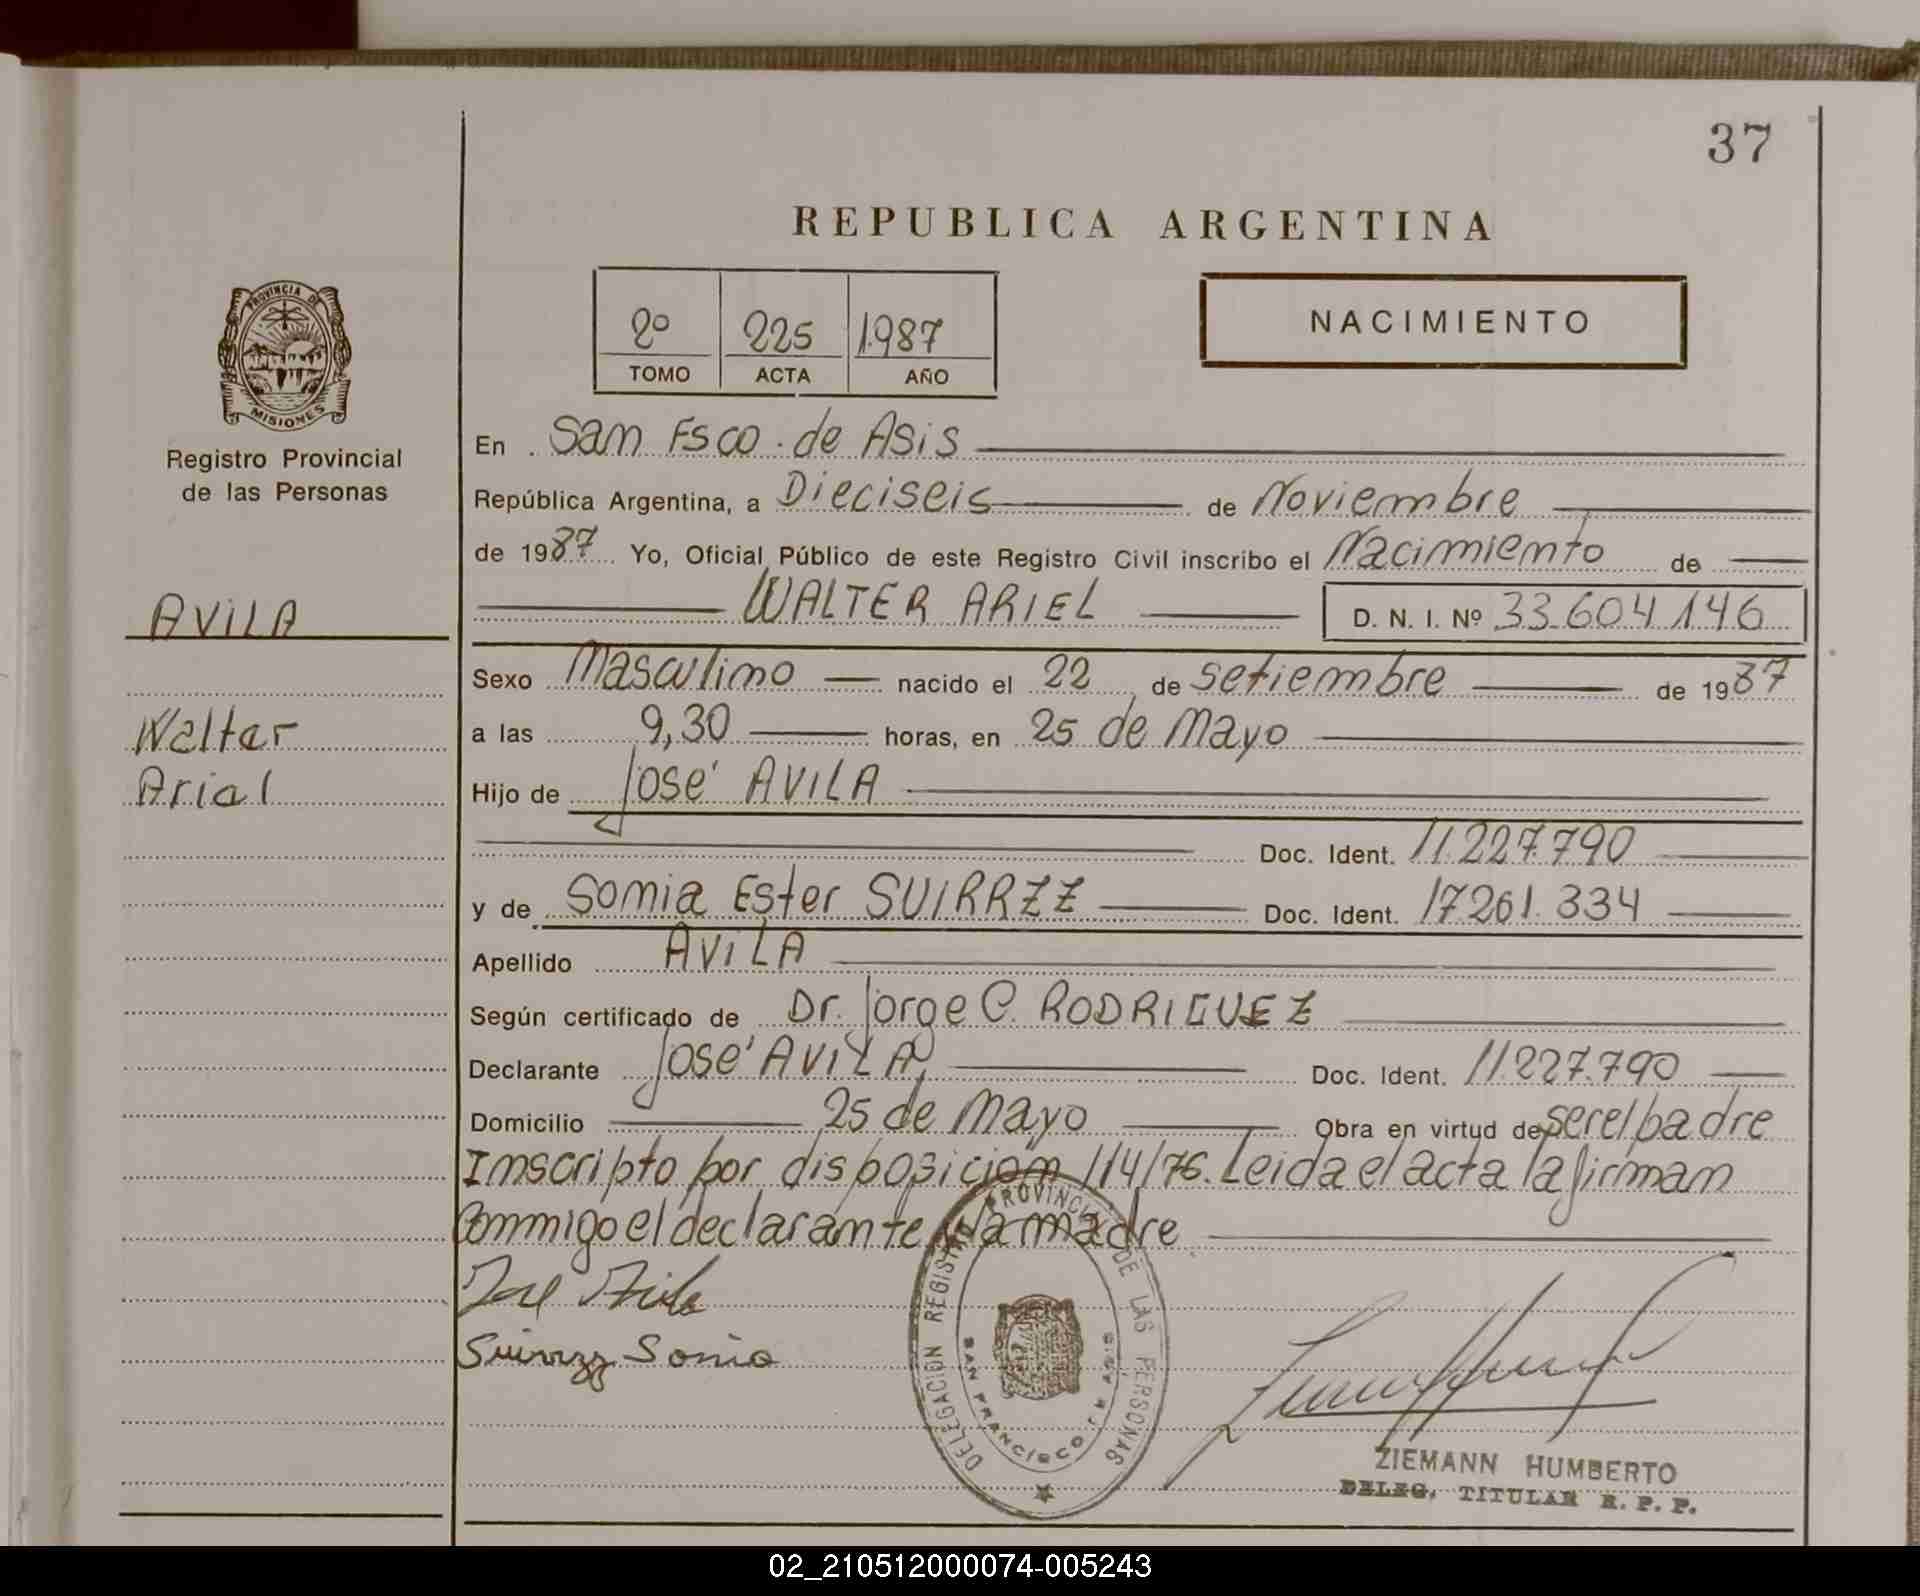 37
REPUBLICA ARGENTINA
2º 225 1.987
TOMO ACTA AÑO
NACIMIENTO
PROVINCIA DE
MISIONES
Registro Provincial
de las Personas
AVILA
Walter
Ariel
En San Fsco. de Asis
República Argentina, a Dieciseis de Noviembre
de 1987 Yo, Oficial Público de este Registro Civil inscribo el Nacimiento de
WALTER ARIEL D. N. I. Nº 33.604.146
Sexo Masculino nacido el 22 de setiembre de 1987
a las 9,30 horas, en 25 de Mayo
Hijo de José AVILA
Doc. Ident. 11.227.790
y de Sonia Ester SUIRRZZ Doc. Ident. 17.261.334
Apellido AVILA
Según certificado de Dr. Jorge C. RODRIGUEZ
Declarante José AVILA Doc. Ident. 11.227.790
Domicilio 25 de Mayo Obra en virtud de ser el padre
Inscripto por disposicion 114/76. Leida el acta la firman
conmigo el declarante y la madre
José Avila
Suirrzz Sonia
DELEGACION REGISTRO PROVINCIAL DE LAS PERSONAS
SAN FRANCISCO DE ASIS
ZIEMANN HUMBERTO
DELEG. TITULAR R. P. P.
02_210512000074-005243